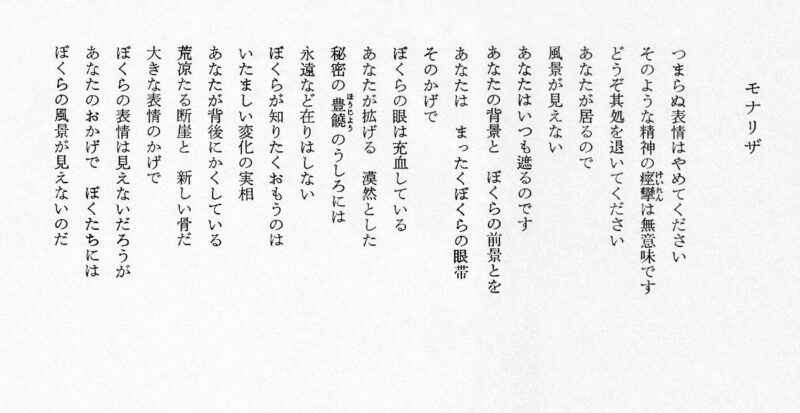 モナリザ
つまらぬ表情はやめてください
そのような精神の痙攣は無意味です
どうぞ其処を退いてください
あなたが居るので
風景が見えない
あなたはいつも遮るのです
あなたの背景と　ぼくらの前景とを
あなたは　まったくぼくらの眼帯
そのかげで
ぼくらの眼は充血している
あなたが拡げる　漠然とした
秘密の豊饒のうしろには
永遠など在りはしない
ぼくらが知りたくおもうのは
いたましい変化の実相
あなたが背後にかくしている
荒凉たる断崖と　新しい骨だ
大きな表情のかげで
ぼくらの表情は見えないだろうが
あなたのおかげで　ぼくたちには
ぼくらの風景が見えないのだ